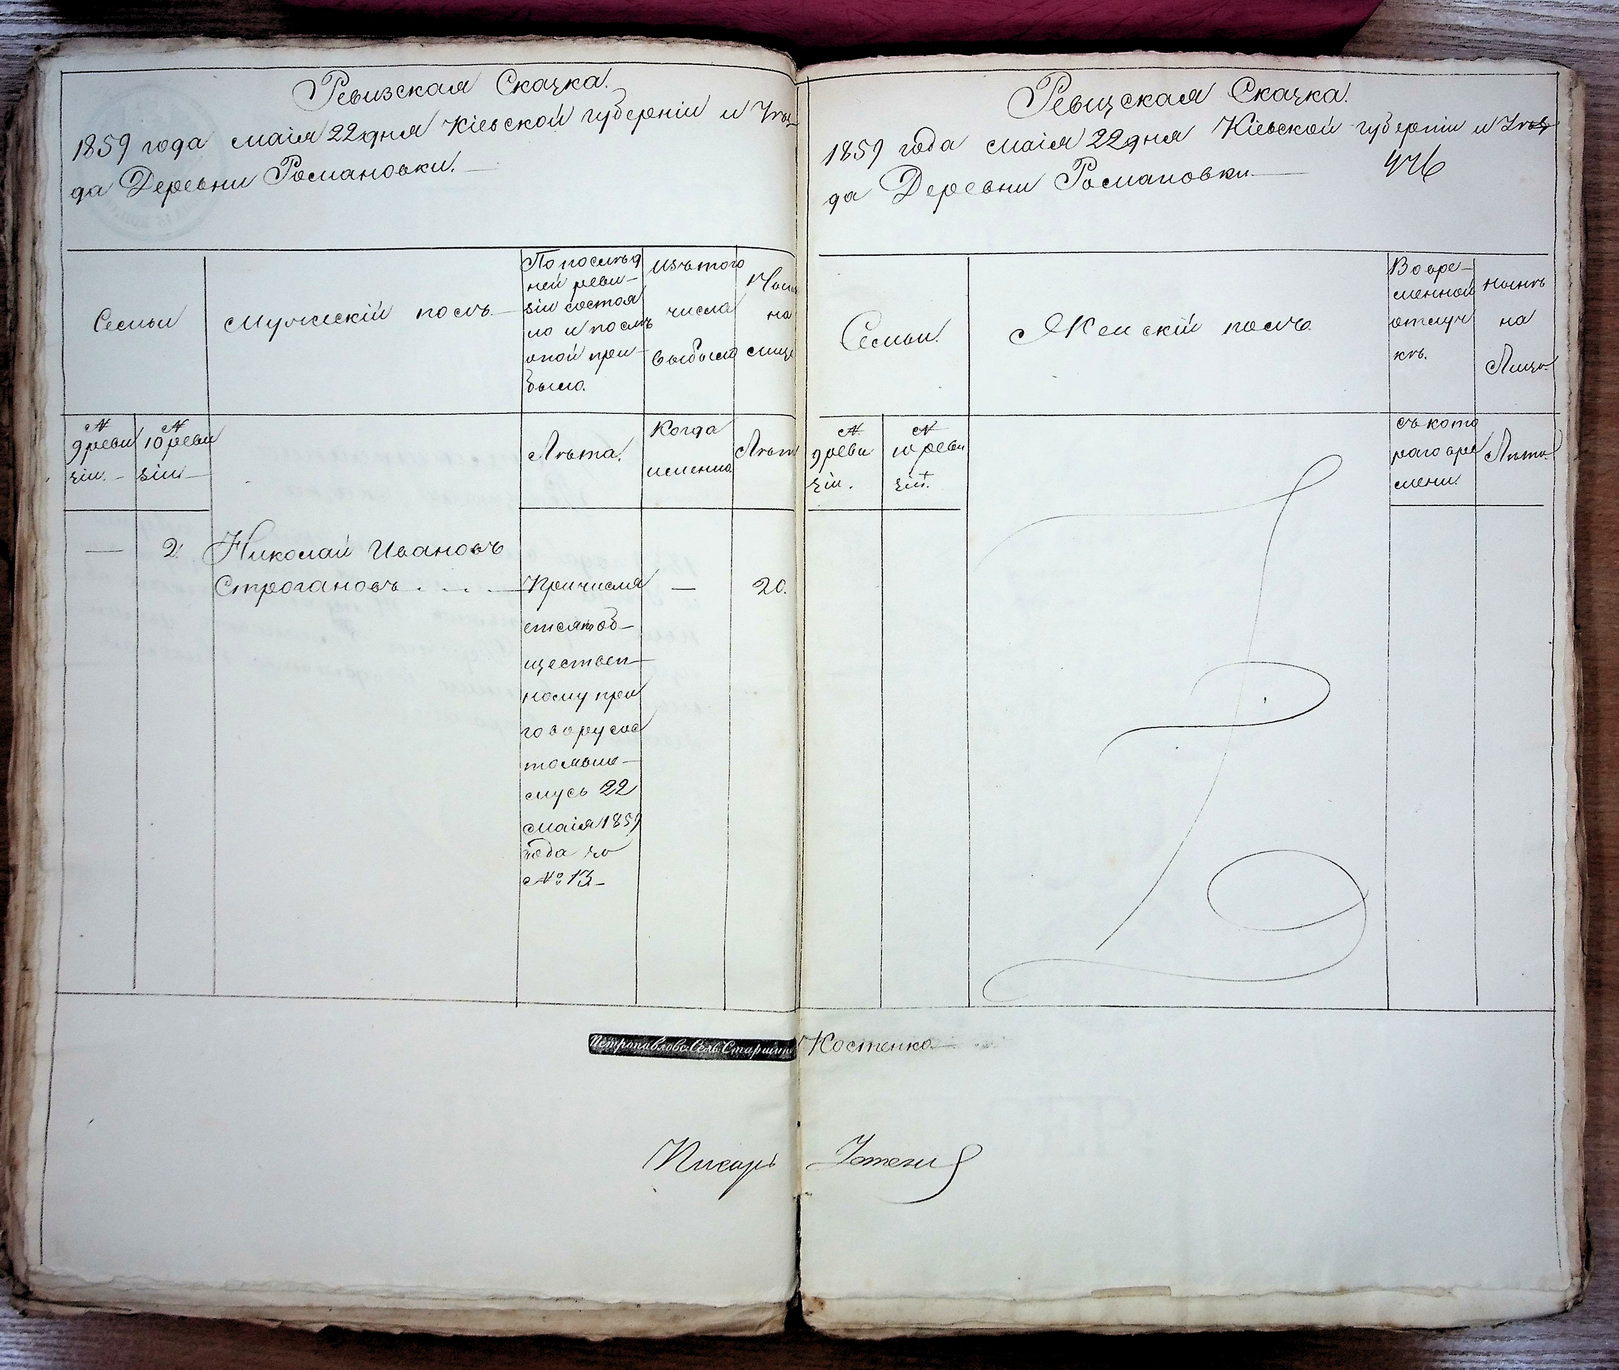 Ревизская Сказка.
1859 года маія 22 дня Кіевской губерніи и Уѣз-
да Деревни Романовки.
Семьи
Мужескій полъ
По послѣд
ней реви-
зіи состоя
ло и послѣ
оной при-
было.
Изъ того
числа
выбыло
на
№
9 реви
зіи.
№
10 реви
зіи
Лѣта.
Когда
именно
Лѣта
— 2 Николай Ивановъ
Строгановъ — Причисля — 20.
ется по об-
ществен-
ному при
говору сос
тоявше-
муся 22
маія 1859
года за
№ 13
Ревизская Сказка.
1859 года маія 22 дня Кіевской губерніи и Уѣз
да Деревни Романовки
Семьи
Женскій полъ
Во вре-
менной
отлуч
кѣ.
на
Лицо
№
9 реви
зіи.
№
10 реви
зіи.
съ кото
раго вре
мени.
Лѣта
Петропавловс. Сельс. Старшина Костенко
Писарь